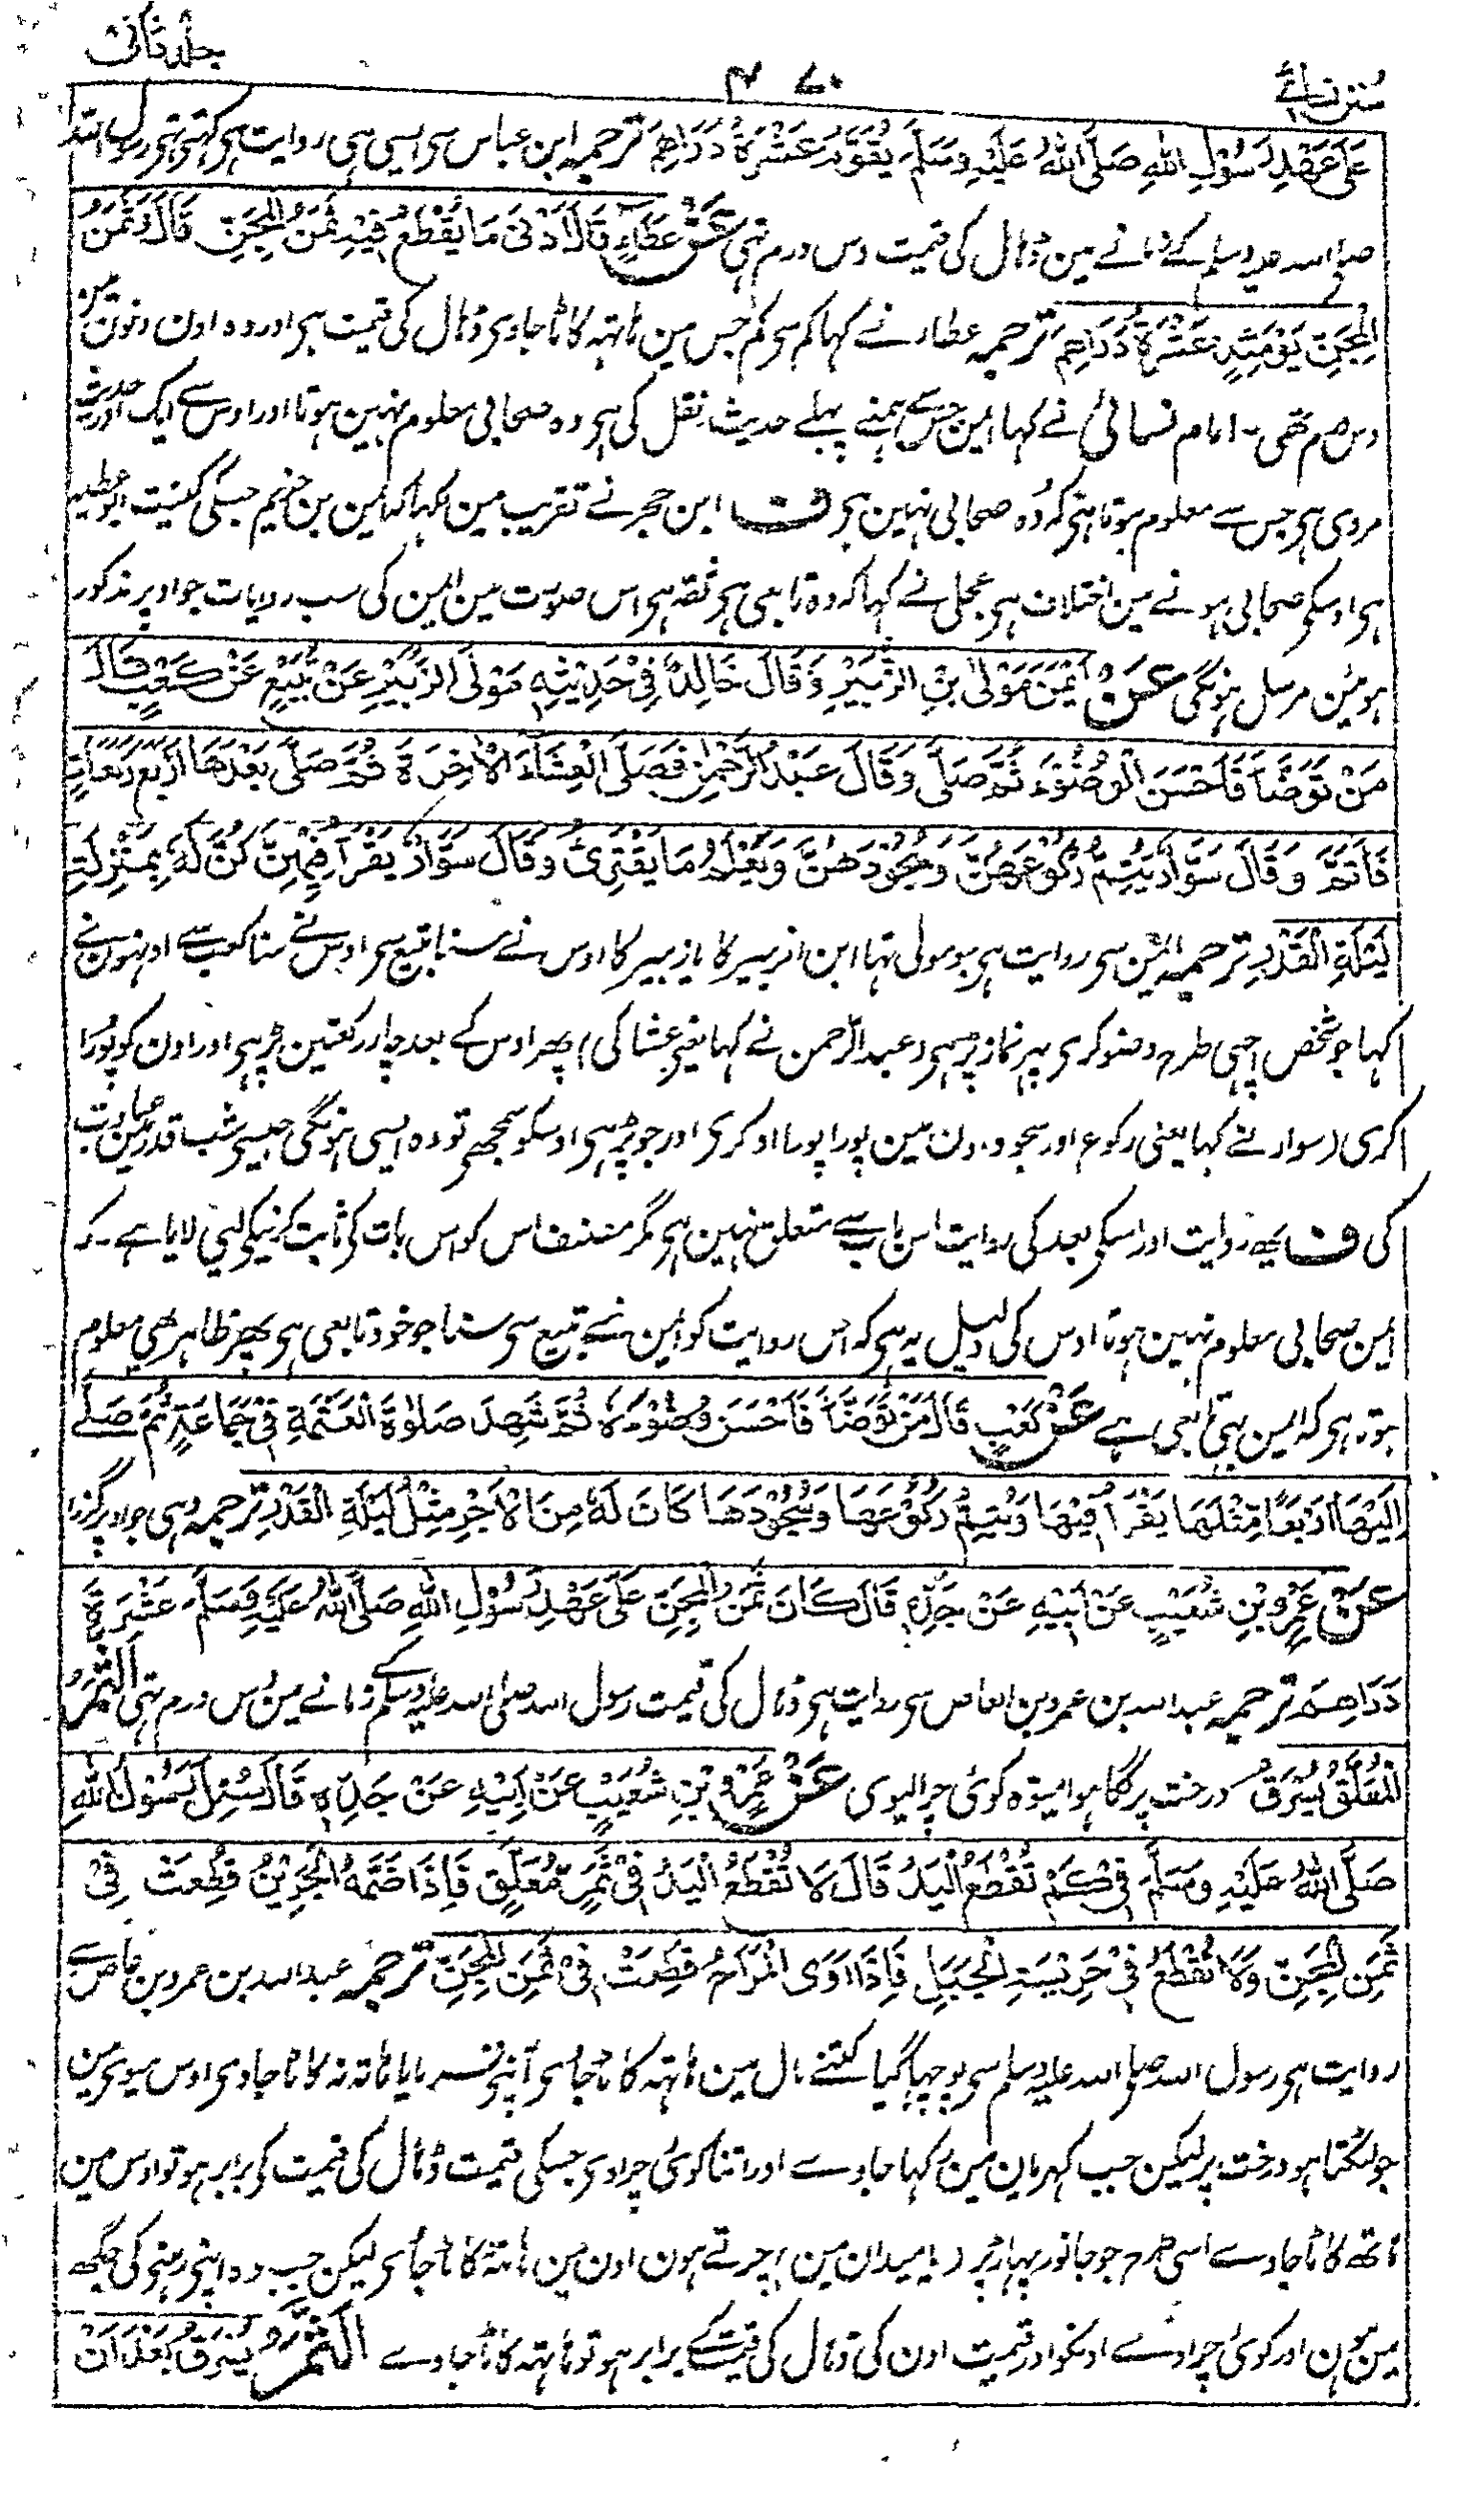 سنن نسائے ۴۷۰ جلد ثانی
عَلٰى عَهْدِ رَسُوْلِ اللهِ صَلَّى اللهُ عَلَيْهِ وَسَلَّمَ يُقَوَّمُ عَشَرَةُ دَرَاهِمَ ترجمہ ابن عباس سی ایسی ہی روایت ہی کہتی تہی رسول اللہ
صلی اللہ علیہ وسلم کے زمانے مین ڈھال کی قیمت دس درم تہی عَنْ عَطَاءٍ قَالَ اَدْنٰى مَا يُقْطَعُ فِيْهِ ثَمَنُ الْمِجَنِّ قَالَ وَثَمَنُ
الْمِجَنِّ يَوْمَئِذٍ عَشْرَةُ دَرَاهِمَ ترجمہ عطار نے کہا کم سی کم جس مین ہاتہہ کاٹا جاوی ڈھال کی قیمت ہی اور وہ اون دنون مین
دس درم تھی - امام نسائی نے کہا ایمن جس سے ہمنے پہلے حدیث نقل کی ہی وہ صحابی معلوم نہین ہوتا اور اوس سے ایک اور حدیث
مروی ہی جس سے معلوم ہوتا ہی کہ وُہ صحابی نہین ہی ف ابن حجر نے تقریب مین لکہا کہ ایمن بن خریم جسکی کنیت ابو عطیہ
ہی اوسکی صحابی ہونے مین اختلاف ہی عجلی نے کہا کہ وہ تابعی ہی ثقہ ہی اس صورت مین ایمن کی سب روایات جو اوپر مذکور
ہوئین مرسل ہونگی عَنْ اَيْمَنَ مَوْلَى بْنِ الزُّبَيْرِ وَقَالَ خَالِدٌ فِيْ حَدِيْثِهٖ مَوْلَى الزُّبَيْرِ عَنْ تُبَيْعٍ عَنْ كَعْبٍ قَالَ
مَنْ تَوَضَّأَ فَاَحْسَنَ الْوُضُوْءَ ثُمَّ صَلّٰى وَقَالَ عَبْدُ الرَّحْمٰنِ فَصَلَّى الْعِشَاءَ الْاٰخِرَةَ ثُمَّ صَلّٰى بَعْدَهَا اَرْبَعَ رَكَعَاتٍ
فَاَتَمَّ وَقَالَ سَوَّارٌ يُتِمُّ رُكُوْعَهُنَّ وَسُجُوْدَهُنَّ وَيَعْلَمُ مَا يَقْتَرِئُ وَقَالَ سَوَّارٌ يَقْرَأُ فِيْهِنَّ كُنَّ لَهٗ بِمَنْزِلَةِ
لَيْلَةِ الْقَدْرِ ترجمہ ایمن سی روایت ہی جو مولی تہا ابن الزبیر کا یا زبیر کا اوس نے سنا تبیع سی اوس نے سنا کعب سے اونہون نے
کہا جو شخص اچہی طرح وضو کری پہر نماز پڑہی (عبدالرحمن نے کہا یعنی عشا کی) پھر اوس کے بعد چار رکعتین پڑہی اور اون کو پُورا
کری (سوار نے کہا یعنی رکوع اور سجود اون مین پورا پورا ادا کری اور جو پڑہی اوسکو سمجھی تو وہ ایسی ہونگی جیسی شب قدر مین عبادت
کی ف یہہ روایت اور اسکی بعد کی روایت اس باب سے متعلق نہین ہی مگر مصنف اس کو اس بات کی ثابت کرنیکی لیے لایا ہے - کہ
ایمن صحابی معلوم نہین ہوتا اوس کی دلیل یہ ہی کہ اس روایت کو ایمن نے تبیع سی سنا جو خود تابعی ہی پھر ظاہر یہی معلوم
ہوتا ہی کہ ایمن بہی تابعی ہے عَنْ كَعْبٍ قَالَ مَنْ تَوَضَّأَ فَاَحْسَنَ وُضُوْءَهٗ ثُمَّ شَهِدَ صَلٰوةَ الْعَتَمَةِ فِيْ جَمَاعَةٍ ثُمَّ صَلّٰى
اِلَيْهَا اَرْبَعًا مِثْلَهَا يَقْرَأُ فِيْهَا وَيُتِمُّ رُكُوْعَهَا وَسُجُوْدَهَا كَانَ لَهٗ مِنَ الْاَجْرِ مِثْلُ لَيْلَةِ الْقَدْرِ ترجمہ وہی جو اوپر گزرا
عَنْ عَمْرِو بْنِ شُعَيْبٍ عَنْ اَبِيْهِ عَنْ جَدِّهٖ قَالَ كَانَ ثَمَنُ الْمِجَنِّ عَلٰى عَهْدِ رَسُوْلِ اللهِ صَلَّى اللهُ عَلَيْهِ وَسَلَّمَ عَشَرَةَ
دَرَاهِمَ ترجمہ عبداللہ بن عمرو بن العاص سی روایت ہی ڈھال کی قیمت رسول اللہ صلی اللہ علیہ وسلم کے زمانے مین دس درم تہی اَلثَّمَرُ
الْمُعَلَّقُ يُسْرَقُ درخت پر لگا ہوا میوہ کوئی چرالیوی عَنْ عَمْرِو بْنِ شُعَيْبٍ عَنْ اَبِيْهِ عَنْ جَدِّهٖ قَالَ سُئِلَ رَسُوْلُ اللهِ
صَلَّى اللهُ عَلَيْهِ وَسَلَّمَ فِيْ كَمْ تُقْطَعُ الْيَدُ قَالَ لَا تُقْطَعُ الْيَدُ فِيْ ثَمَرٍ مُعَلَّقٍ فَاِذَا ضَمَّهُ الْجَرِيْنُ قُطِعَتْ فِيْ
ثَمَنِ الْمِجَنِّ وَلَا تُقْطَعُ فِيْ حَرِيْسَةِ الْجَبَلِ فَاِذَا اٰوَى الْمُرَاحُ قُطِعَتْ فِيْ ثَمَنِ الْمِجَنِّ ترجمہ عبداللہ بن عمرو بن عاص سے
روایت ہی رسول اللہ صلی اللہ علیہ وسلم سی پوچہا گیا کتنے مال مین ہاتہہ کاٹا جائی آپنی فرمایا ہاتہ نہ کاٹا جاوی اوس میوی مین
جو لگتا ہو درخت پر لیکن جب کہریان مین رکہا جاوے اور اتنا کوئی چراوی جسکی قیمت ڈھال کی قیمت کی برابر ہو تو اوس مین
ہاتھ کاٹا جاوے اسی طرح جو جانور پہاڑ پر (یا میدان مین) چرتے ہون اون مین ہاتہ کاٹا جائی لیکن جب وہ اپنی رہنی کی جگہہ
مین ہون اور کوئی چراوے اونکو اور قیمت اون کی ڈھال کی قیمت کے برابر ہو تو ہاتہہ کاٹا جاوے اَلثَّمَرُ يُسْرَقُ بَعْدَ اَنْ